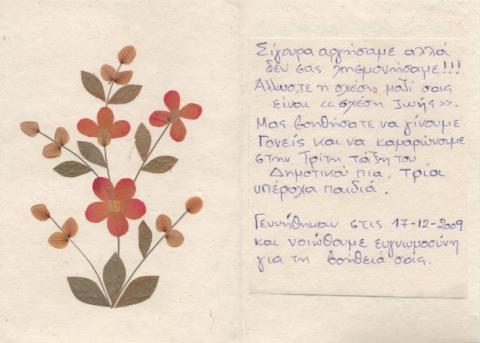 Σίγουρα αργήσαμε αλλά
δεν σας λησμονήσαμε!!!
Άλλωστε η σχέση μαζί σας
είναι «σχέση ζωής».
Μας βοηθήσατε να γίνουμε
Γονείς και να καμαρώνουμε
στην Τρίτη τάξη του
Δημοτικού πια, τρία
υπέροχα παιδιά.
Γεννήθηκαν στις 17-12-2009
και νοιώθουμε ευγνωμοσύνη
για τη βοήθειά σας.